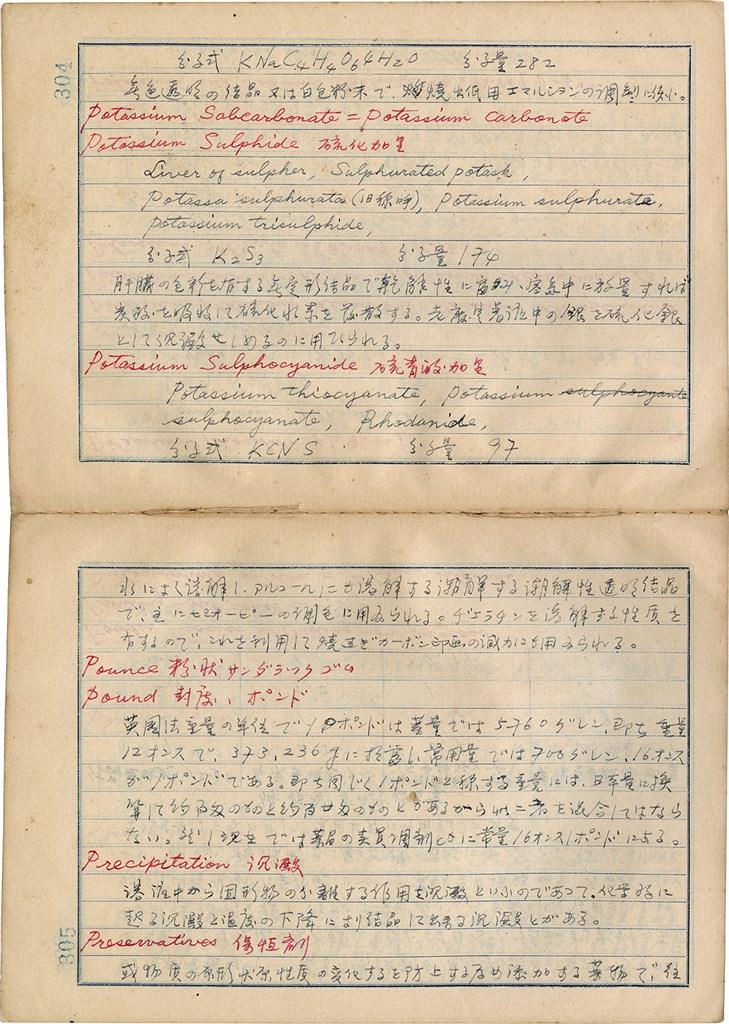 304
分子式 KNaC4H4O6 4H2O 分子量 282
無色透明の結晶又は白色粉末で、焼出紙用エマルションの調製に使ふ。
Potassium Sabcarbonate = Potassium carbonate
Potassium Sulphide 硫化加里
Liver of sulpher, Sulphurated potash,
Potassa sulphurata (旧称呼), Potassium sulphurate,
Potassium trisulphide,
分子式 K2S3 分子量 174
肝臓の色彩を有する無定形結晶で乾燥性に 空気中に放置すれば
炭酸を吸収して硫化水素を放散する。老廃定着液中の銀を硫化銀
として沈澱せしめるのに用ひられる。
Potassium Sulphocyanide 硫青酸加里
Potassium thiocyanate, Potassium sulphocyante
sulphocyanate, Rhodanide,
分子式 KCNS 分子量 97
水によく溶解し、アルコールにも溶解する潮解する潮解性透明結晶
で、主にピーオーピーの調色に用ゐられる。ゲェラチンを溶解する性質を
有するので、これを利用して焼過ぎカーボン印画の減力にも用ゐられる。
Pounce 粉状サンダラックゴム
Pound 封度、ポンド
英国法重量の単位で1ポンドは薬量では5760グレン、即ち重量
12オンスで、373,236gに 常用量では7000グレン、16オンス
が1ポンドである。即ち同じく1ポンドと称する重量には、日本量に換
算して約百匁のものと約百廿匁のものとがあるから此二者を混合してはなら
ない。然し現在では薬品の売買調剤ともに常量16オンス1ポンドによる。
Precipitation 沈澱
溶液中から固形物の分離する作用を沈澱といふのであつて、化学的に
起る沈澱と温度の下降により結晶して出来る沈澱とがある。
Preservatives 保恒剤
或物质の原形状原性質の変化するを防止する為め添加する薬物で、往
305